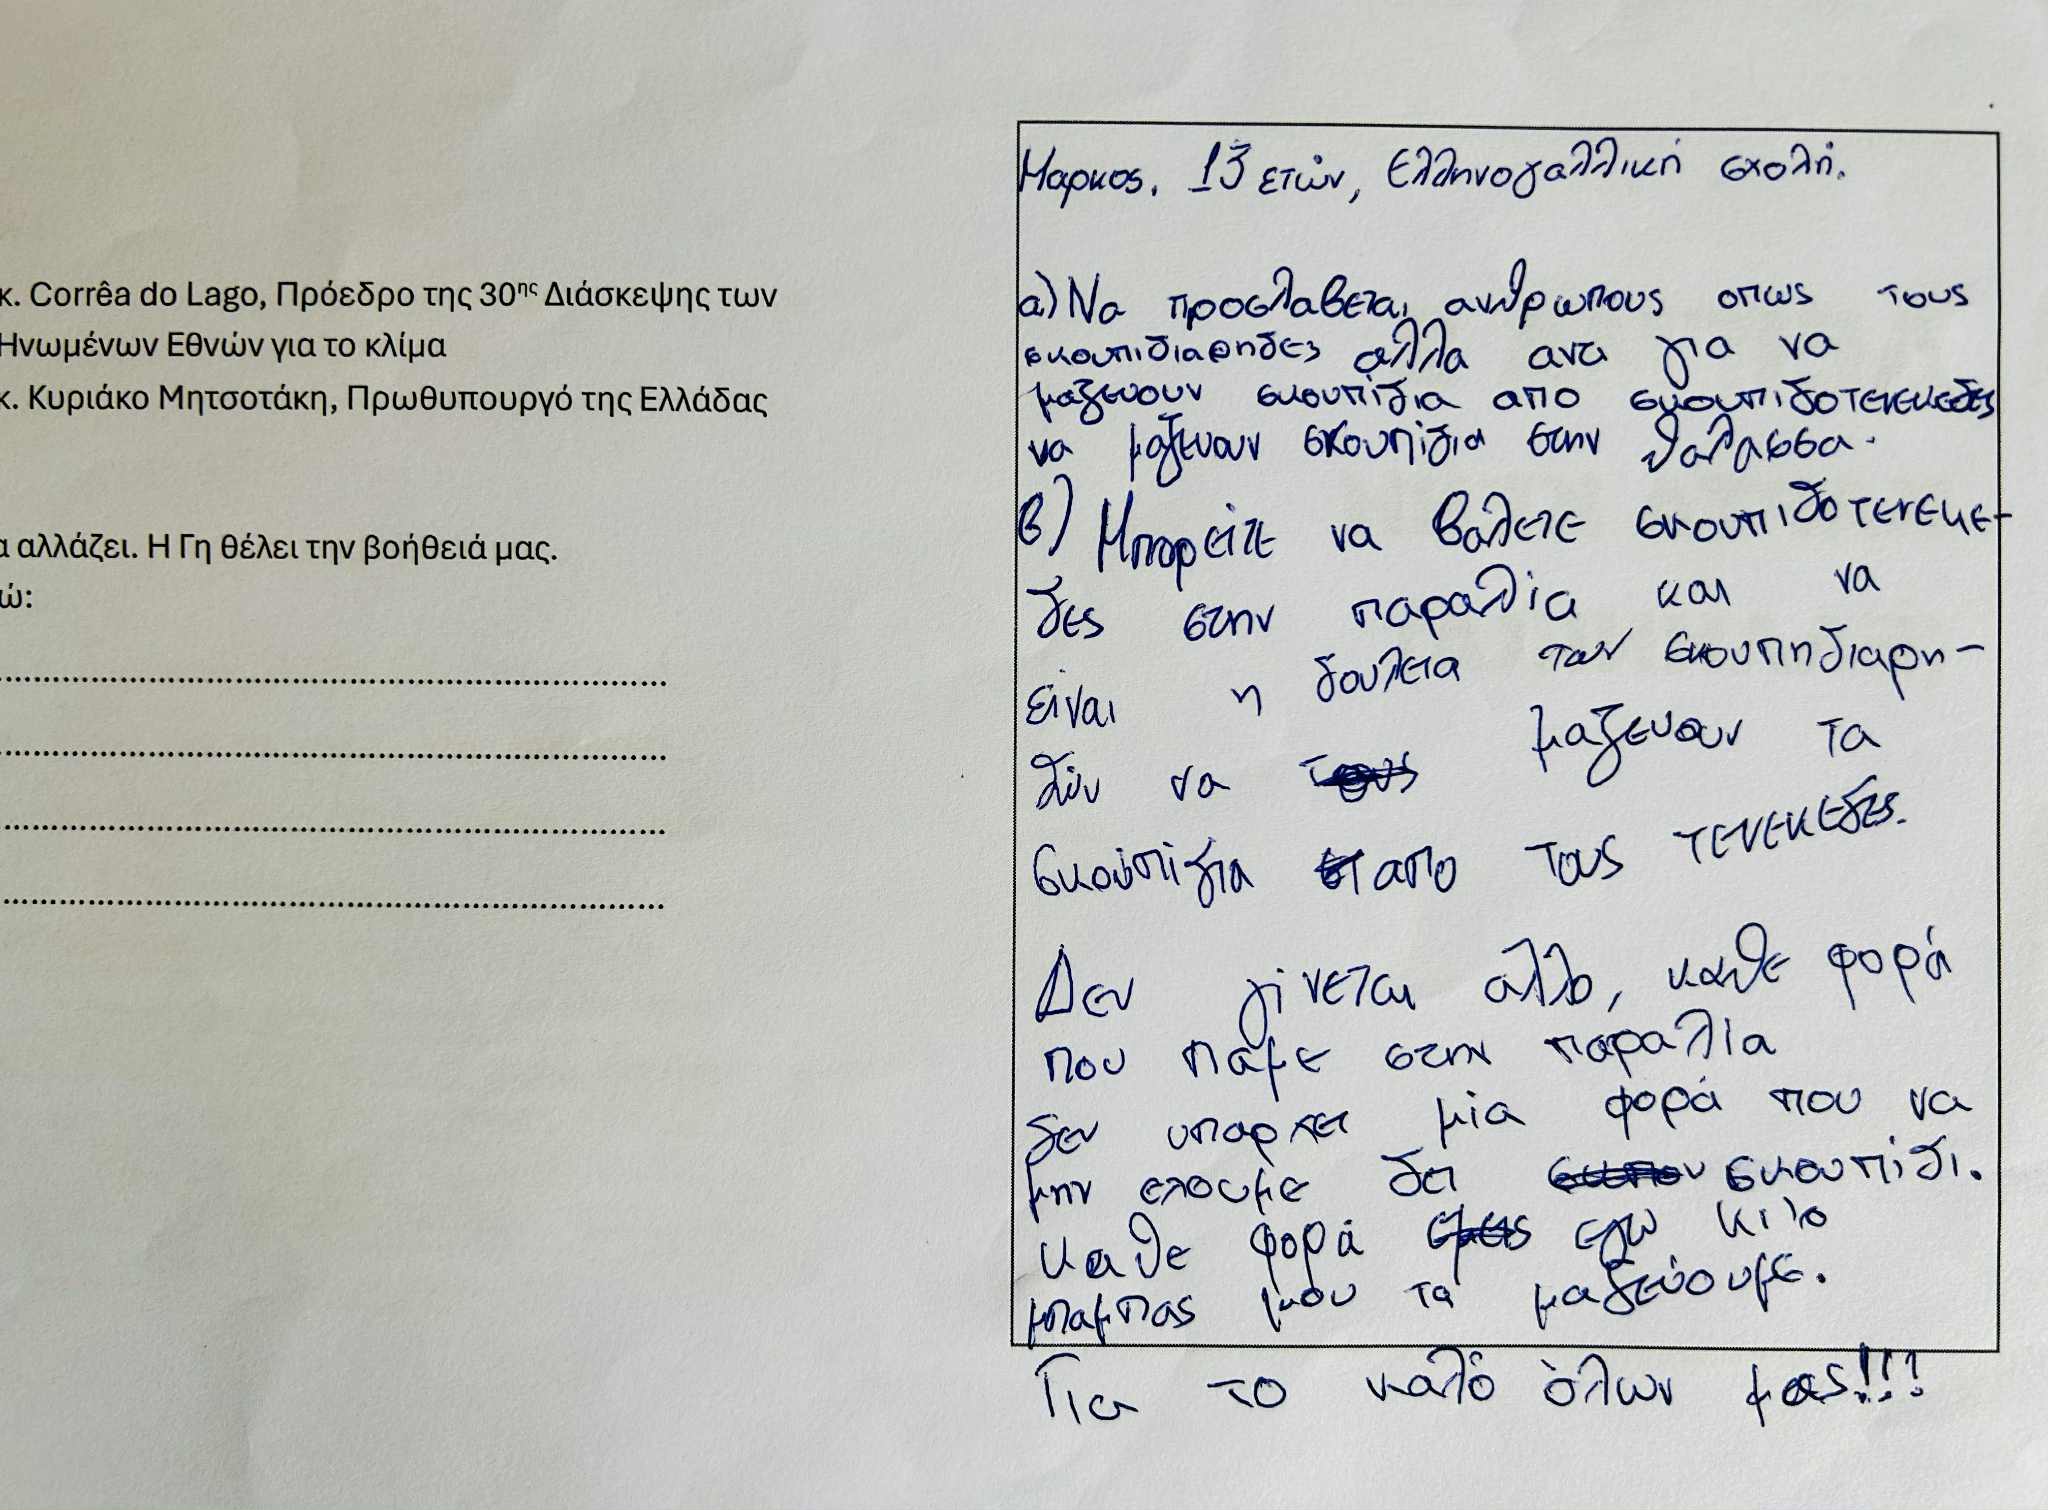 κ. Corrêa do Lago, Πρόεδρο της 30ης Διάσκεψης των
Ηνωμένων Εθνών για το κλίμα
κ. Κυριάκο Μητσοτάκη, Πρωθυπουργό της Ελλάδας
α αλλάζει. Η Γη θέλει την βοήθειά μας.
ώ:
Μαρκος. 13 ετών, Ελληνογαλλική σχολή.
α) Να προσλαβεται ανθρωπους οπως τους
σκουπιδιαρηδες αλλα αντι για να
μαζευουν σκουπίδια απο σκουπιδοτενεκεδες
να μαζευουν σκουπίδια στην θαλασσα.
β) Μπορείτε να βαλετε σκουπιδοτενεκε-
δες στην παραλία και να
είναι η δουλεια των σκουπηδιαρη-
δών να μαζευουν τα
σκουπίδια απο τους τενεκεδες.
Δεν γίνεται αλλο, καθε φορά
που πάμε στην παραλία
δεν υπαρχει μία φορά που να
μην εχουμε δει σκουπίδι.
Καθε φορά εγω κι ο
μπαμπας μου τα μαζεύουμε.
Για το καλό όλων μας!!!